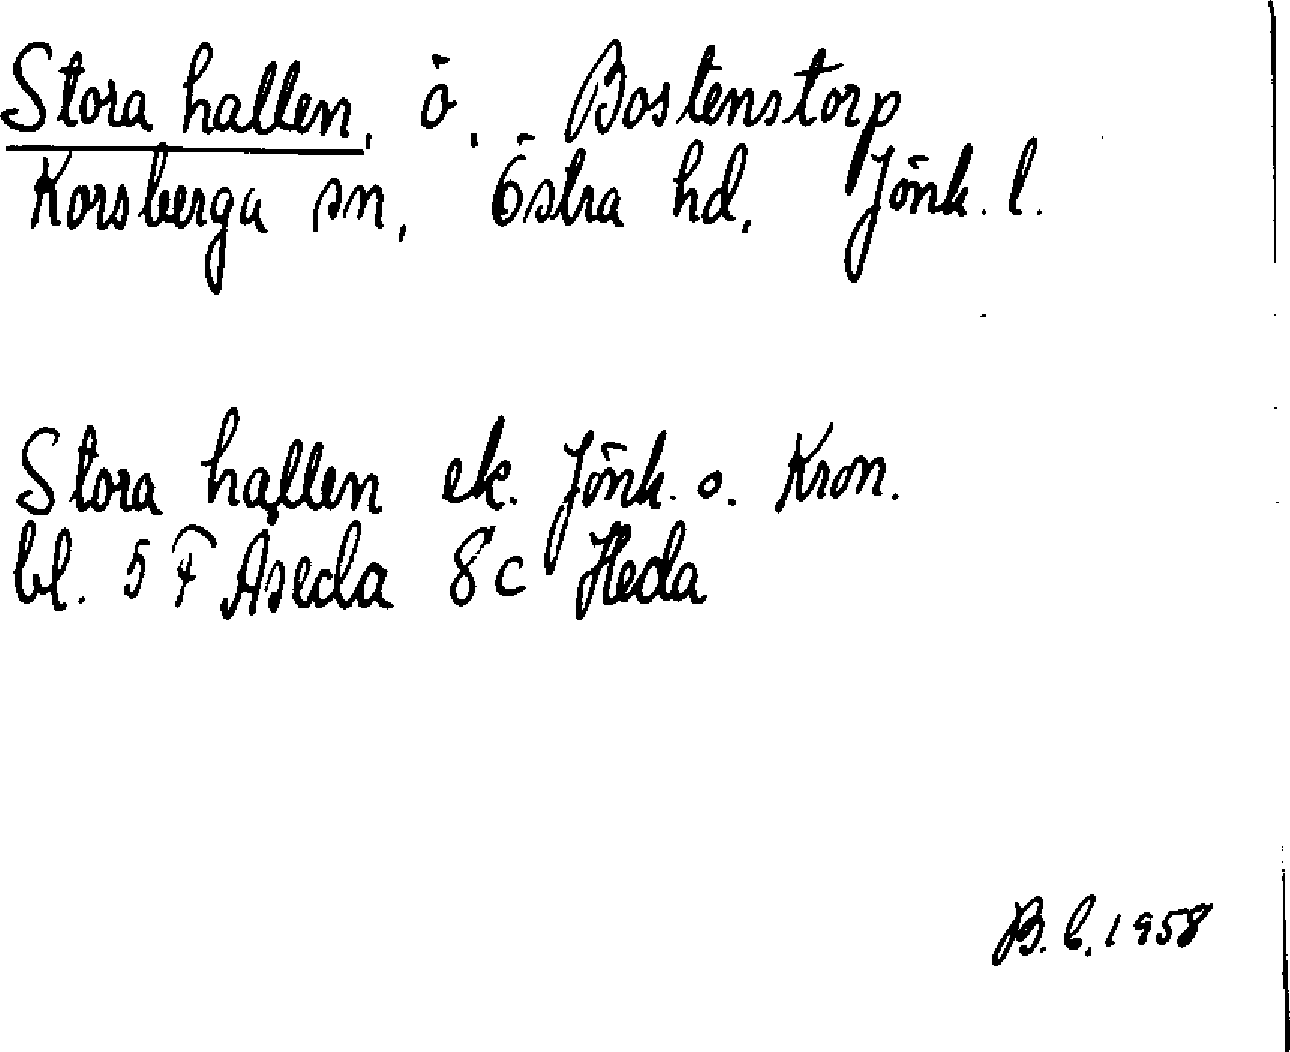 Stora hallen, ö, Bostenstorp
Korsberga sn, Östra hd, Jönk. l.
Stora hallen ek. Jönk. o. Kron.
bl. 5 F Åseda 8c Heda
B. C. 1958